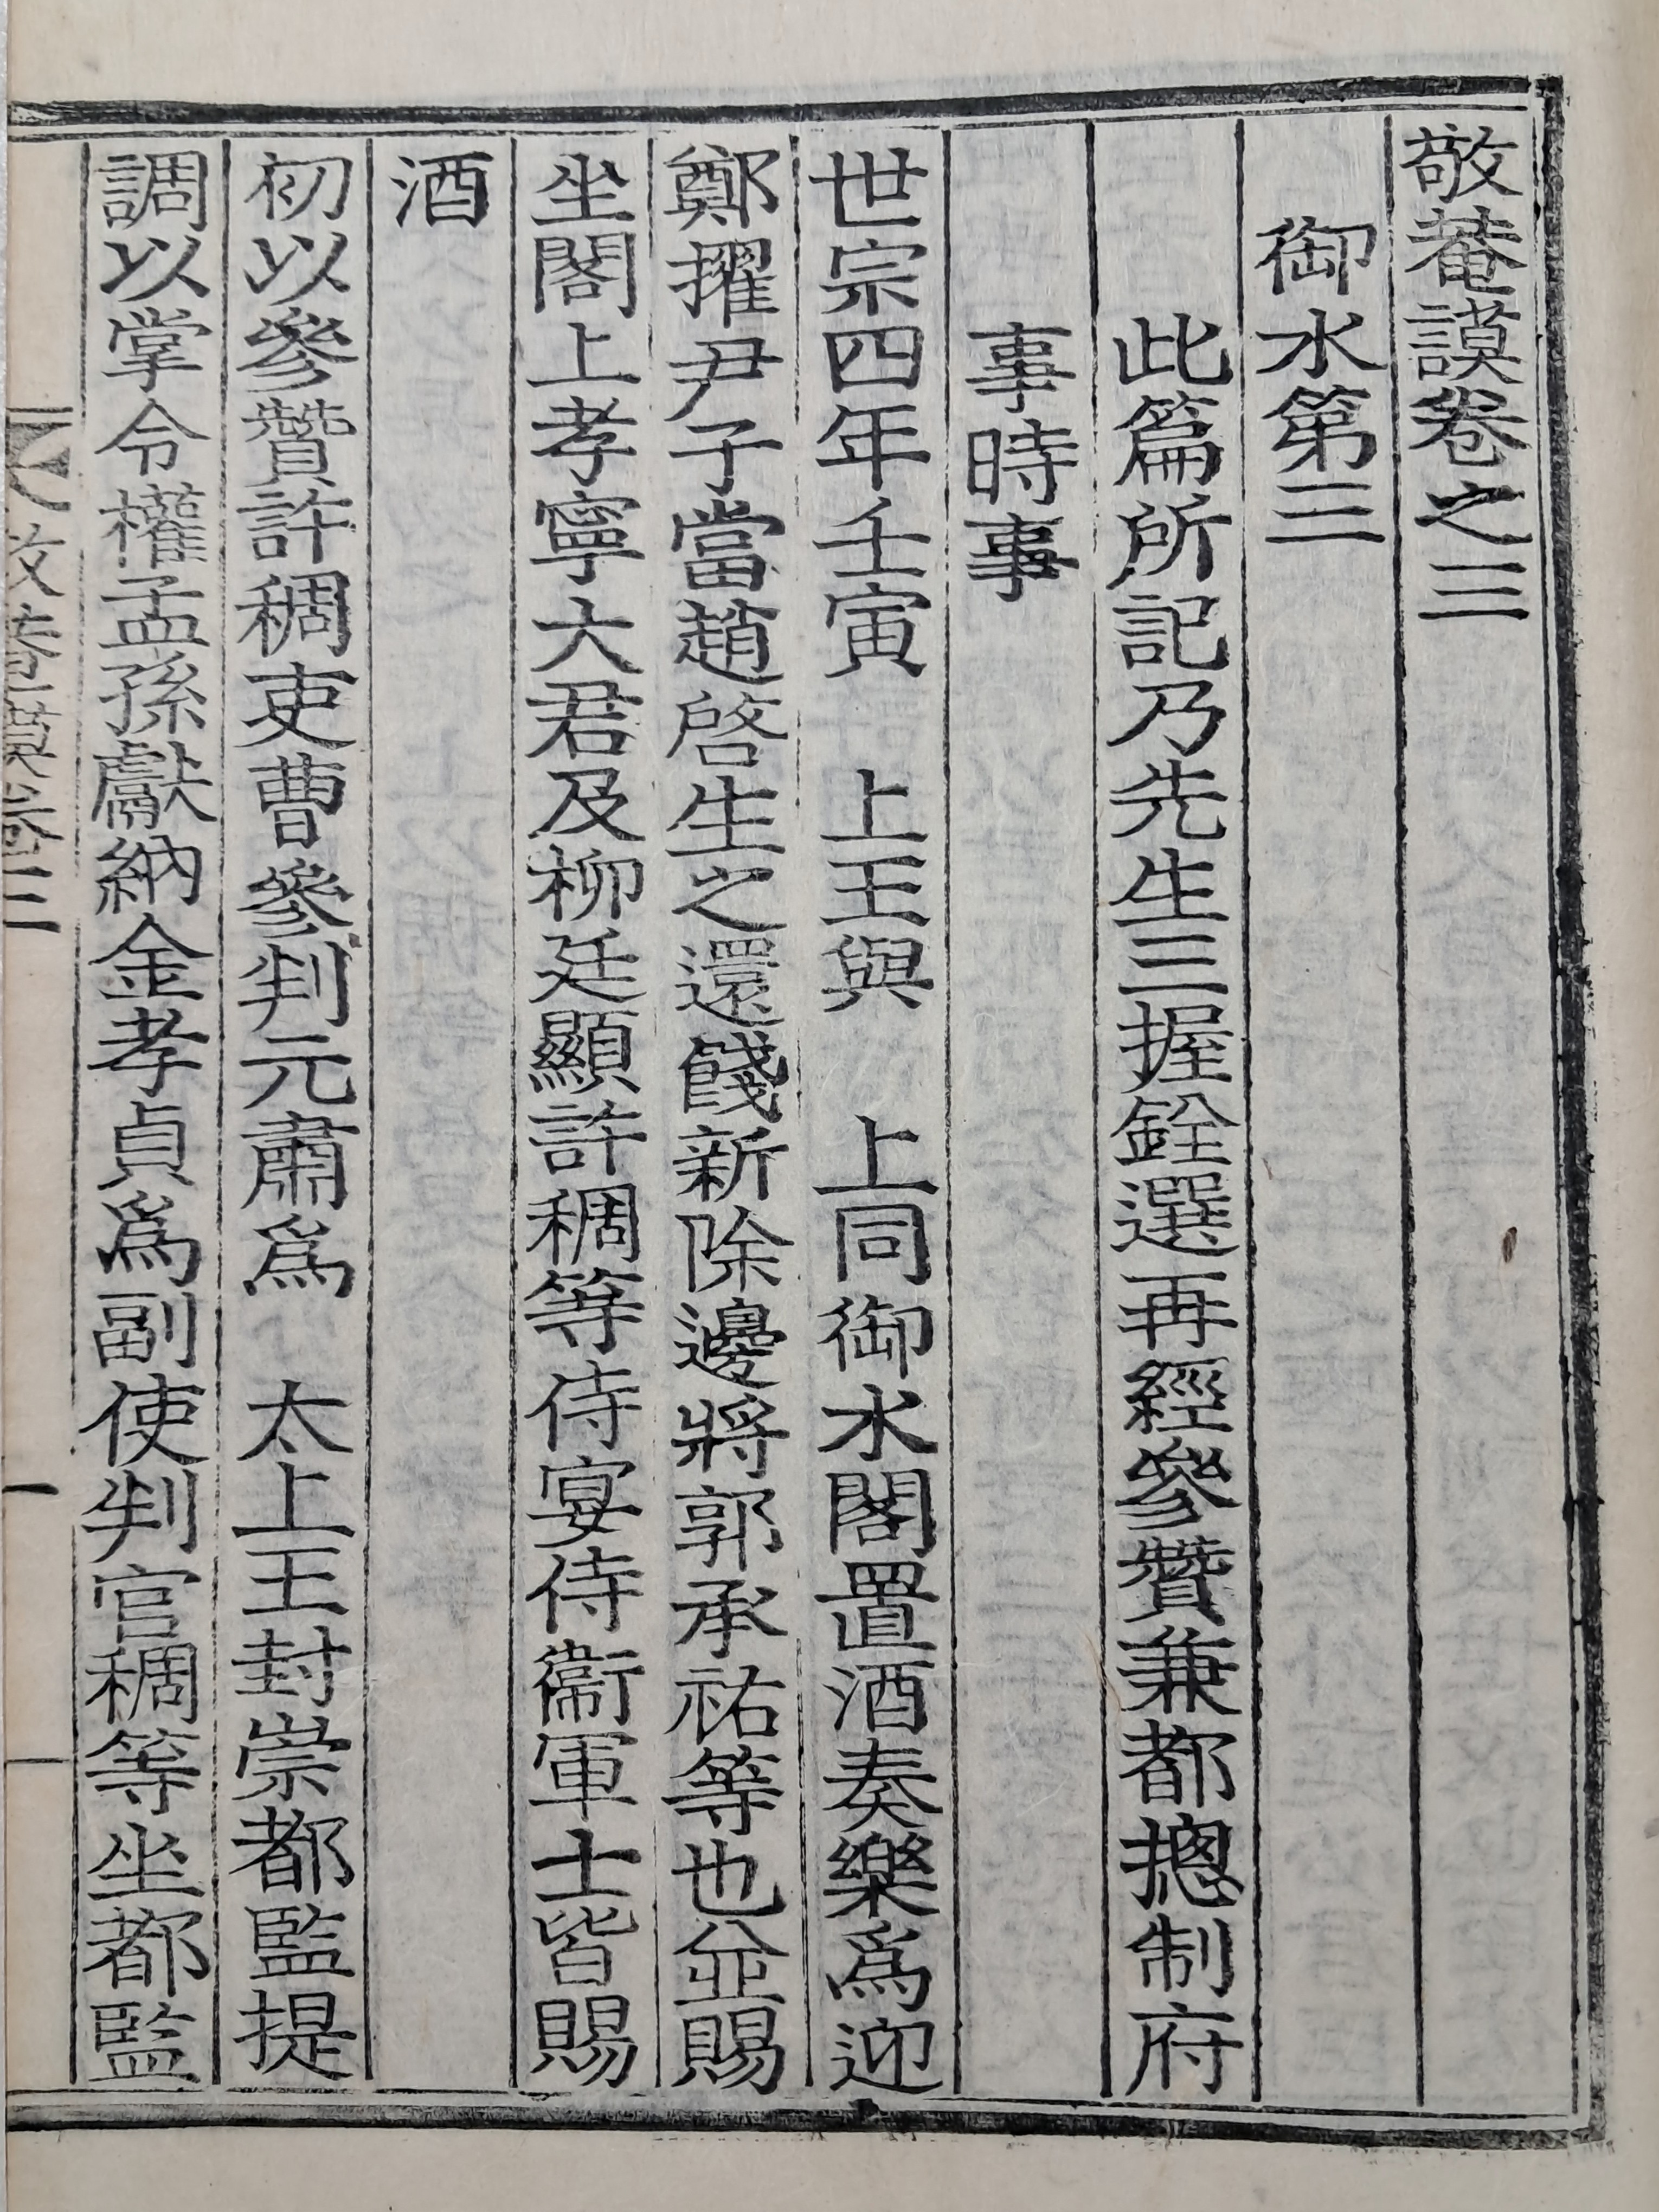 敬菴謨卷之三
御水第三
此篇所記乃先生三握銓選再經參贊兼都摠制府
事時事
世宗四年壬寅　上王與　上同御水閣置酒奏樂爲迎
鄭擢尹子當趙啓生之還餞新除邊將郭承祐等也並賜
坐閣上孝寧大君及柳廷顯許稠等侍宴侍衞軍士皆賜
酒
初以參贊許稠吏曹參判元肅爲　太上王封崇都監提
調以掌令權孟孫獻納金孝貞爲副使判官稠等坐都監
敬菴謨卷三
一